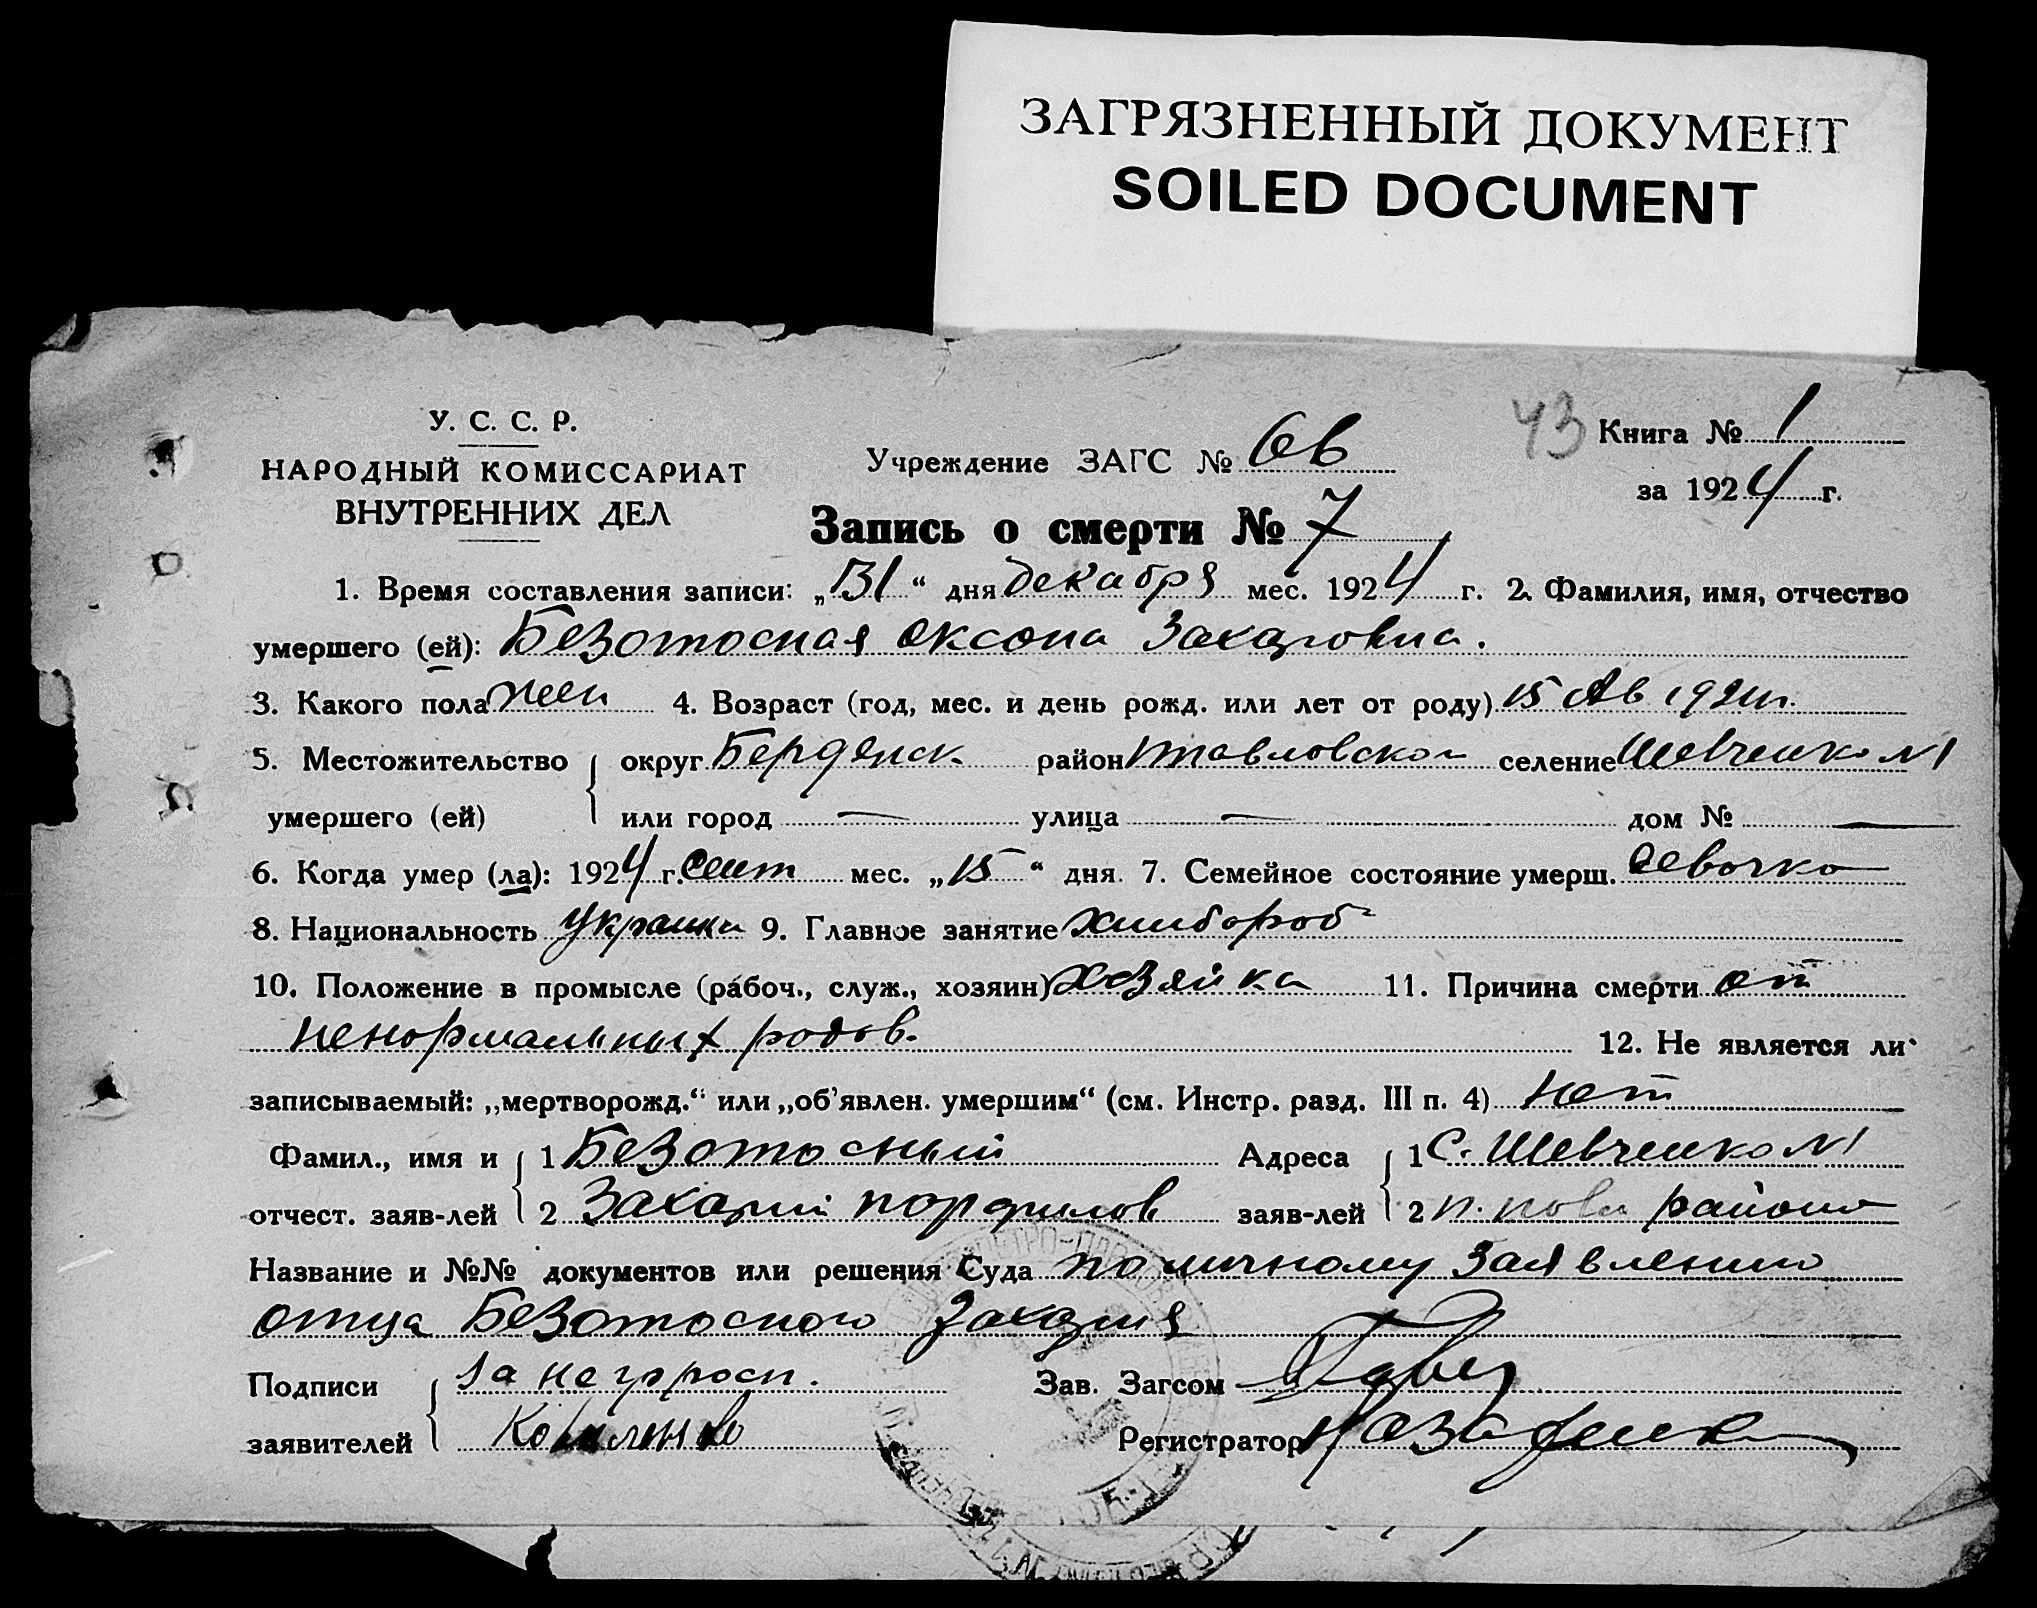 ЗАГРЯЗНЕННЫЙ ДОКУМЕНТ
SOILED DOCUMENT
У. С. С. Р.
НАРОДНЫЙ КОМИССАРИАТ
ВНУТРЕННИХ ДЕЛ
Учреждение ЗАГС №
43 Книга № 1
за 1924 г.
Запись о смерти № 7
1. Время составления записи: „31“ дня декабря мес. 1924 г. 2. Фамилия, имя, отчество
умершего (ей): Безотосная Оксона Захаровна.
3. Какого пола жен 4. Возраст (год, мес. и день рожд. или лет от роду) 15 Ав
5. Местожительство округ Бердянск район селение Шевченко №1
умершего (ей) или город — улица — дом № —
6. Когда умер (ла): 1924 г. сент мес. „15“ дня. 7. Семейное состояние умерш. девочка
8. Национальность украинка 9. Главное занятие хлибороб
10. Положение в промысле (рабоч., служ., хозяин) хозяйка 11. Причина смерти от
ненормальных родов. 12. Не является ли
записываемый: „мертворожд.“ или „об'явлен. умершим“ (см. Инстр. разд. III п. 4) нет
Фамил., имя и 1 Безотосный Адреса 1 С. Шевченко №1
отчест. заяв-лей 2 Захарий порфилов заяв-лей 2 района
Название и №№ документов или решения Суда по личному заявлению
отца Безотосного Захария
Подписи за неграосн. Зав. Загсом
заявителей Регистратор